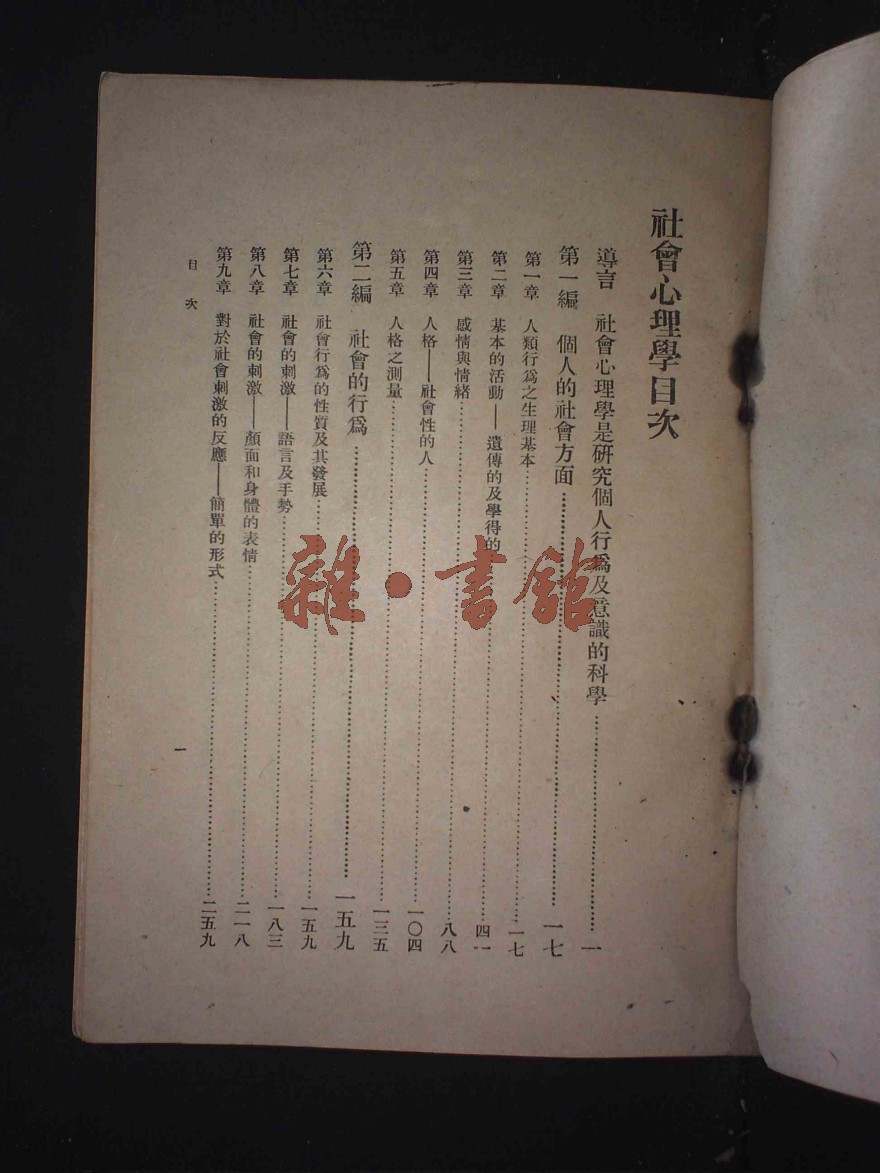 社會心理學目次
導言　社會心理學是研究個人行爲及意識的科學…………一
第一編　個人的社會方面…………一七
第一章　人類行爲之生理基本…………一七
第二章　基本的活動——遺傳的及學得的…………四一
第三章　感情與情緒…………八八
第四章　人格——社會性的人…………一〇四
第五章　人格之測量…………一三五
第二編　社會的行爲…………一五九
第六章　社會行爲的性質及其發展…………一五九
第七章　社會的刺激——語言及手勢…………一八三
第八章　社會的刺激——顏面和身體的表情…………二一八
第九章　對於社會刺激的反應——簡單的形式…………二五九
目次
一
雜·書館